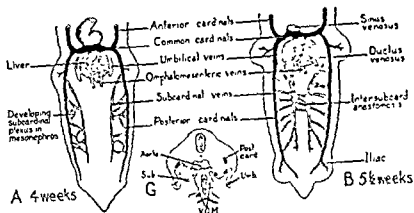 Anterior cardinals
Common cardinals
Umbilical veins
Omphalomesenteric veins
Subcardinal veins
Posterior cardinals
Liver
Developing
subcardinal
plexus in
mesonephros
A 4 weeks
Sinus
venosus
Ductus
venosus
Intersubcard
anastomosis
Iliac
B 5½ weeks
Aorta
Sub
Post
card
Umb.
G
V.C.M